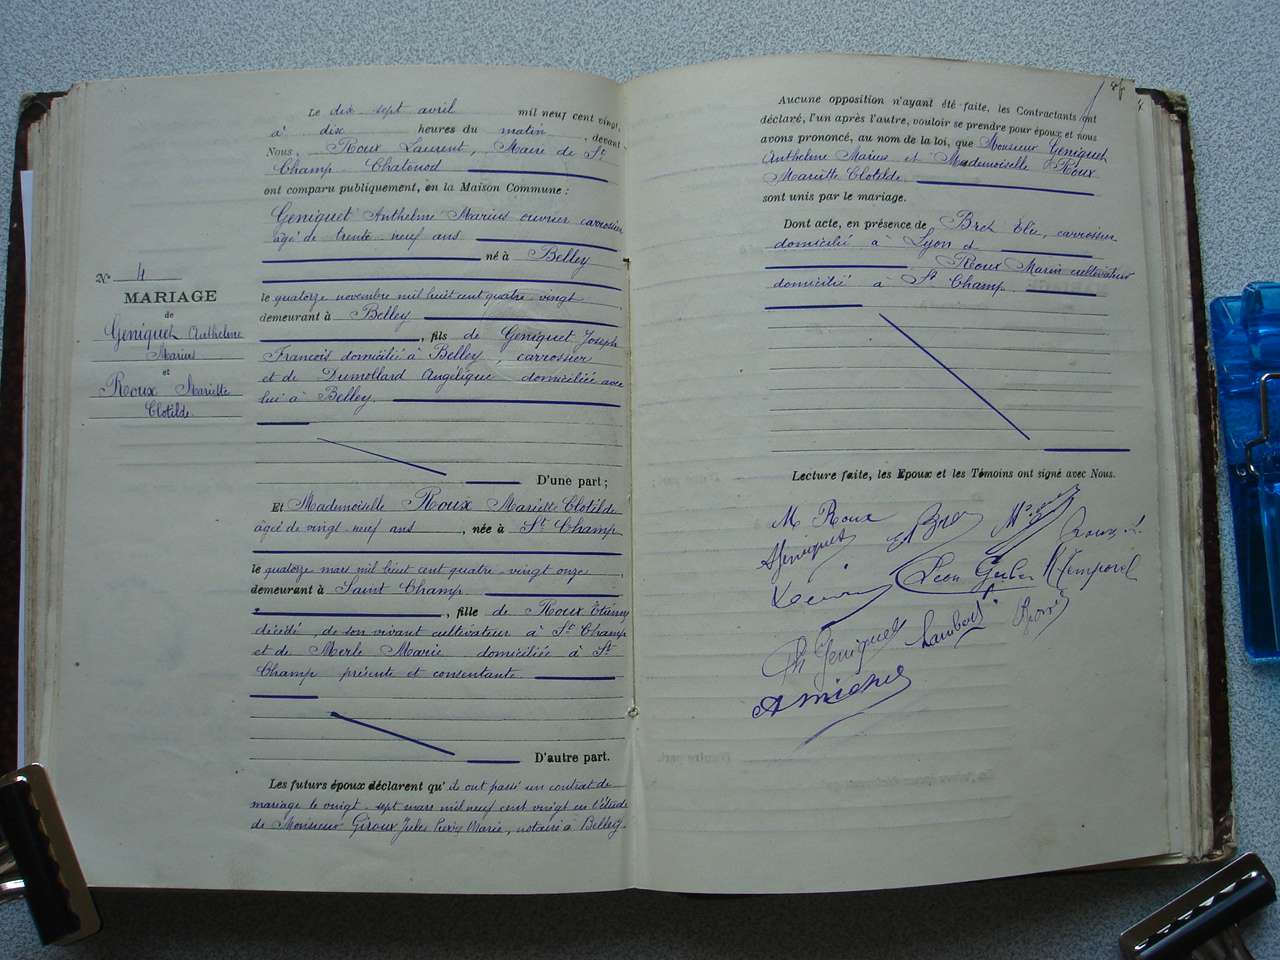 N° 4
MARIAGE
de
Geniquet Anthelme
Marius
et
Roux Mariette
Clotilde.
Le dix sept avril mil neuf cent vingt,
à dix heures du matin, devant
Nous, Roux Laurent, Maire de St
Champ Chatonod
ont comparu publiquement, en la Maison Commune :
Geniquet Anthelme Marius ouvrier carrossier
âgé de trente neuf ans
né à Belley
le quatorze novembre mil huit cent quatre vingt
demeurant à Belley
, fils de Geniquet Joseph
François domicilié à Belley, carrossier
et de Dumollard Angélique domiciliée avec
lui à Belley.
D'une part ;
Et Mademoiselle Roux Mariette Clotilde
âgée de vingt neuf ans, née à St Champ
le quatorze mars mil huit cent quatre-vingt onze,
demeurant à Saint Champ
, fille de Roux Etienne
décédé, de son vivant cultivateur à St Champ
et de Merle Marie domiciliée à St
Champ présente et consentante.
D'autre part.
Les futurs époux déclarent qu'il ont passé un contrat de
mariage le vingt-sept mars mil neuf cent vingt en l'étude
de Monsieur Giroux Jules Marie, notaire à Belley.
Aucune opposition n'ayant été faite, les Contractants ont
déclaré, l'un après l'autre, vouloir se prendre pour époux et nous
avons prononcé, au nom de la loi, que Monsieur Geniquet
Anthelme Marius et Mademoiselle Roux
Mariette Clotilde.
sont unis par le mariage.
Dont acte, en présence de Bret Elie, carrossier
domicilié à Lyon et
Roux Marin cultivateur
domicilié à St Champ.
Lecture faite, les Epoux et les Témoins ont signé avec Nous.
M Roux
AGeniquet
Roux L.
Léon
M Temporel
Ph Geniquet Lambert
A Michel